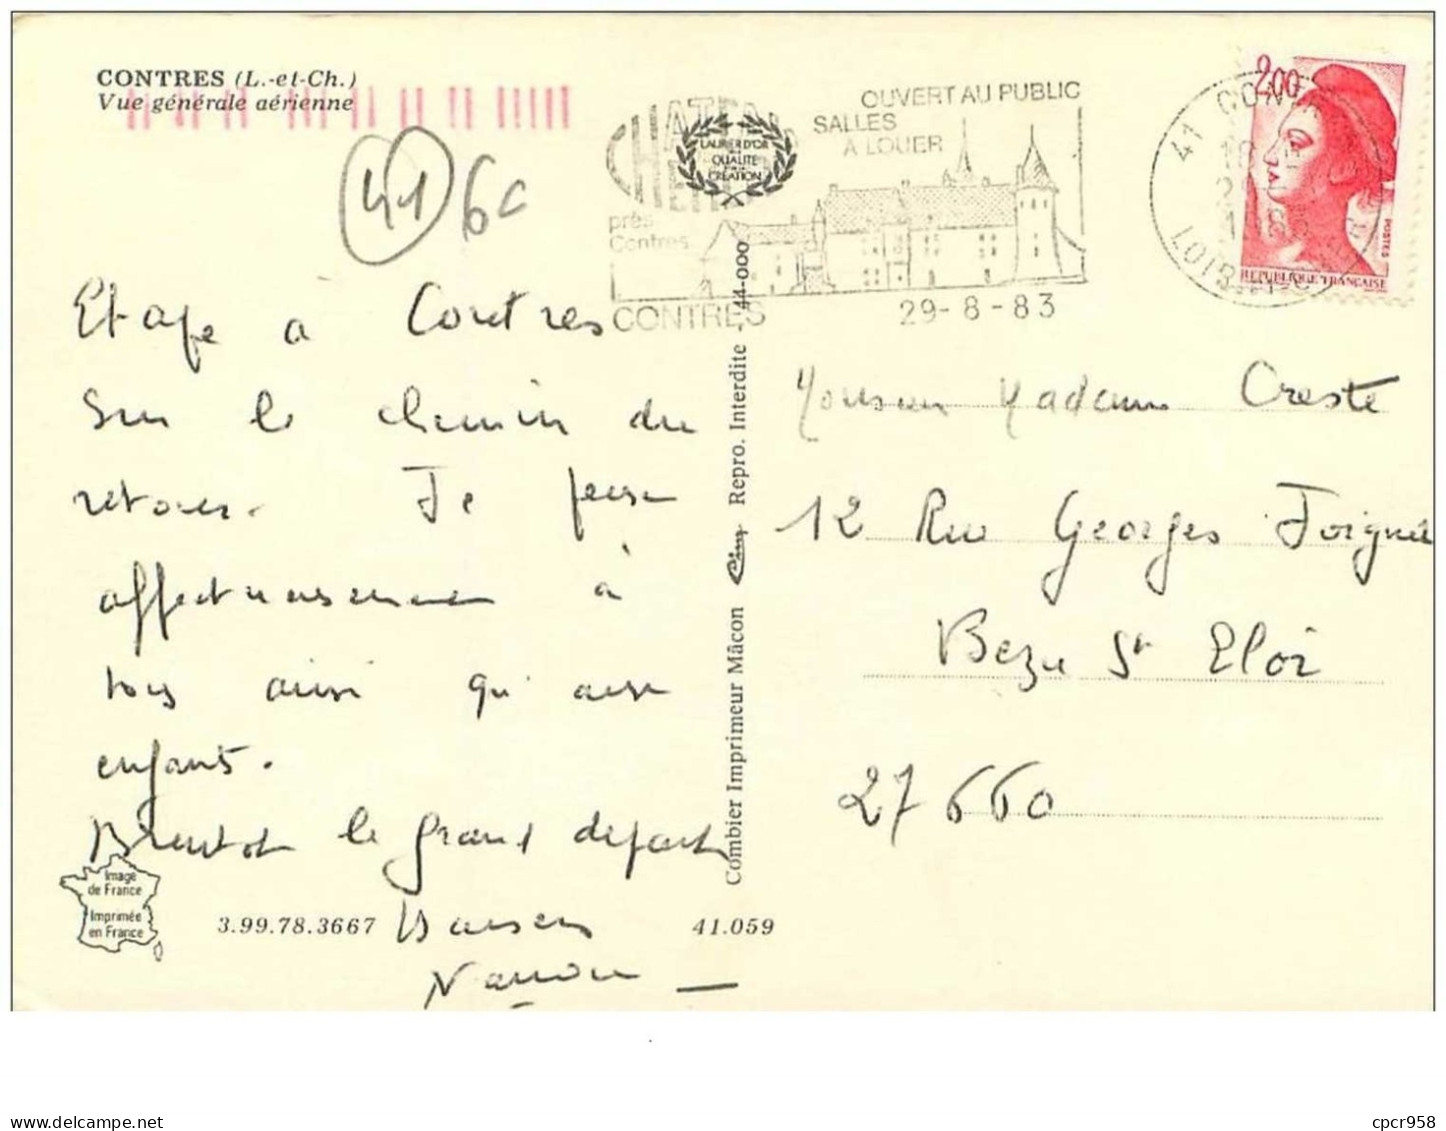 CONTRES (L.-et-Ch.)
Vue générale aérienne
41 6c
près
Contres
CONTRES
LAURIER D'OR
QUALITÉ
CRÉATION
OUVERT AU PUBLIC
SALLES
A LOUER
29-8-83
2,00
POSTES
REPUBLIQUE FRANÇAISE
Etape à Contres
sur le chemin du
retour. Je pense
affectueusement à
tous ainsi qu'aux
enfants.
Bientôt le grand départ
Baisers
Image
de France
Imprimée
en France
3.99.78.3667
41.059
Combier Imprimeur Mâcon
Repro. Interdite - 44-000
Monsieur Madame Creste
12 Rue Georges Joignel
Bezu St Eloi
27660
delcampe.net
cpcr958